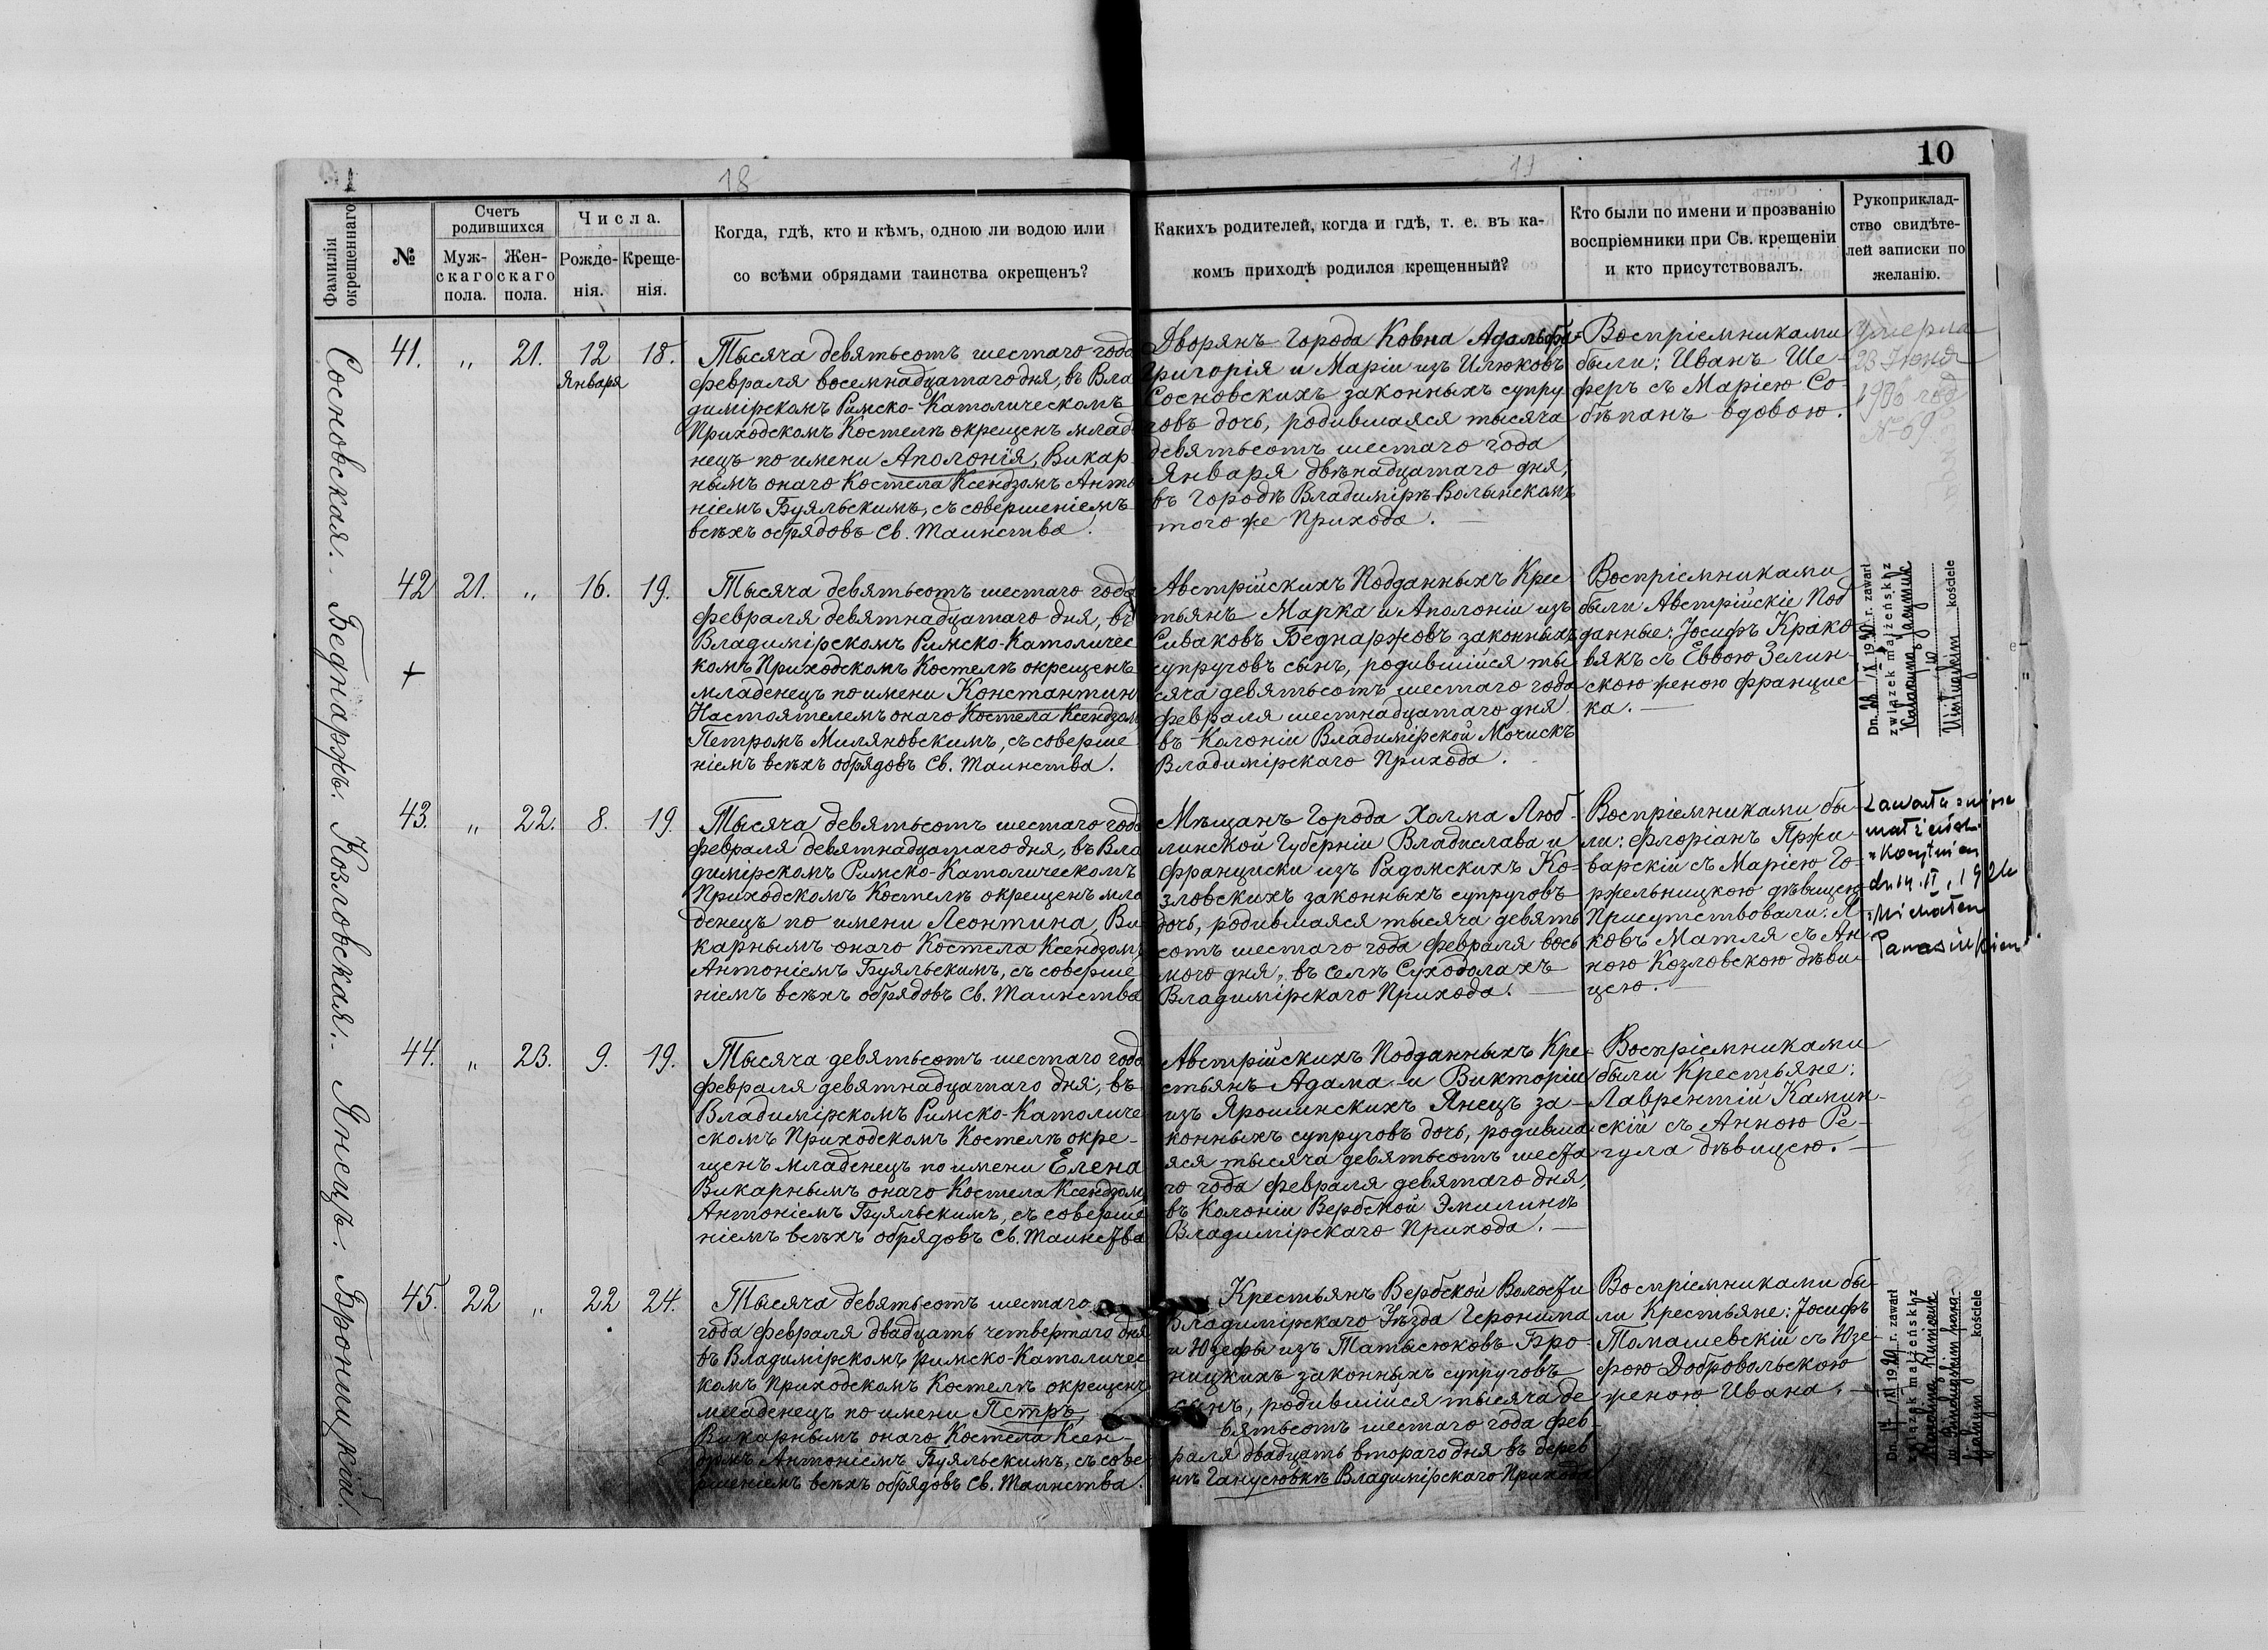 18
11
10
Фамилія
окрещеннаго
№
Счетъ
родившихся
Муж-
скаго
пола.
Жен-
скаго
пола.
Числа.
Рожде-
нія.
Креще-
нія.
Когда, гдѣ, кто и кѣмъ, одною ли водою или
со всѣми обрядами таинства окрещенъ?
Какихъ родителей, когда и гдѣ, т. е. въ ка-
комъ приходѣ родился крещенный?
Кто были по имени и прозванію
воспріемники при Св. крещеніи
и кто присутствовалъ.
Рукоприклад-
ство свидѣте-
лей записки по
желанію.
Сосновская.
41. „ 21. 12 18.
Января
Тысяча девятьсотъ шестаго года
февраля восемнадцатаго дня, въ Вла
димірскомъ Римско-Католическомъ
Приходскомъ Костелѣ окрещенъ млад
нецъ по имени Аполонія, Викар-
нымъ онаго Костела Ксендзомъ Анто
ніемъ Буяльскимъ, съ совершеніемъ
всѣхъ обрядовъ Св. Таинства.
Дворянъ Города Ковна Адольфа-
Григорія и Маріи изъ Илюковъ
Сосновскихъ законныхъ супру
говъ дочь, родившаяся тысяча
девятьсотъ шестаго года
Января двѣнадцатаго дня,
въ Городѣ Владимірѣ-Волынскомъ
того же Прихода.
Воспріемниками
были: Иванъ Ше-
феръ съ Маріею Со-
бѣпанъ вдовою.
Умерла
23 Іюня
1906 год
№ 69
Беднаржъ.
42 21. „ 16. 19.
Тысяча девятьсотъ шестаго года
февраля девятнадцатаго дня, въ
Владимірскомъ Римско-Католичес
комъ Приходскомъ Костелѣ окрещенъ
младенецъ по имени Константин
Настоятелемъ онаго Костела Ксендзом
Петромъ Миляновскимъ, съ соверше
ніемъ всѣхъ обрядовъ Св. Таинства.
Австрійскихъ Подданныхъ Крес
тьянъ Марка и Аполоніи изъ
Сиваковъ Беднаржовъ законныхъ
супруговъ сынъ, родившійся ты
сяча девятьсотъ шестаго года
февраля шестнадцатаго дня
въ Колоніи Владимірской Мочискъ
Владимірскаго Прихода.
Воспріемниками
были Австрійскіе Под
данные: Іосифъ Крако-
вякъ съ Еввою Зелин-
скою женою Францис-
ка.
Dn. 28 IX 1930 r. zawarł
związek małżeński z
w
kościele
Козловская.
43. „ 22. 8. 19.
Тысяча девятьсотъ шестаго года
февраля девятнадцатаго дня, въ Вла
димірскомъ Римско-Католическомъ
Приходскомъ Костелѣ окрещенъ мла
денецъ по имени Леонтина, Ви
карнымъ онаго Костела Ксендзомъ
Антоніемъ Буяльскимъ, съ соверше
ніемъ всѣхъ обрядовъ Св. Таинства
Мѣщанъ Города Холма Люб-
линской Губерніи Владислава и
Франциски изъ Радомскихъ Ко-
зловскихъ законныхъ супруговъ
дочь, родившаяся тысяча девять
сотъ шестаго года февраля вось
мого дня, въ селѣ Суходолахъ
Владимірскаго Прихода.
Воспріемниками бы-
ли: Флоріанъ Пржи-
варскій съ Маріею Го-
ржельницкою дѣвицею
Присутствовали: Я-
ковъ Матля съ Ан-
ною Козловскою дѣви-
цею.
z Michałem
Янецъ.
44. „ 23. 9. 19.
Тысяча девятьсотъ шестаго года
февраля девятнадцатаго дня, въ
Владимірскомъ Римско-Католиче
скомъ Приходскомъ Костелѣ окре-
щенъ младенецъ по имени Елена
Викарнымъ онаго Костела Ксендзом
Антоніемъ Буяльскимъ, съ соверше
ніемъ всѣхъ обрядовъ Св. Таинства
Австрійскихъ Подданныхъ Кре-
стьянъ Адама и Викторіи
изъ Ярошинскихъ Янецъ за-
конныхъ супруговъ дочь, родивша
яся тысяча девятьсотъ шеста
го года февраля девятаго дня,
въ Колоніи Вербской Эмилинѣ
Владимірскаго Прихода.
Воспріемниками
были Крестьяне:
Лаврентій Камин-
скій съ Анною Ре-
гула дѣвицею.
Броницкій.
45. 22 „ 22 24.
Тысяча девятьсотъ шестаго
года февраля двадцать четвертаго дня
въ Владимірскомъ Римско-Католичес
комъ Приходскомъ Костелѣ окрещенъ
младенецъ по имени Петръ,
Викарнымъ онаго Костела Ксен-
дзомъ Антоніемъ Буяльскимъ, съ сове
ршеніемъ всѣхъ обрядовъ Св. Таинства.
Крестьянъ Вербской Волости
Владимірскаго Уѣзда Геронима
и Юзефы изъ Татысюковъ Бро-
ницкихъ законныхъ супруговъ
сынъ, родившійся тысяча де
вятьсотъ шестаго года фев-
раля двадцать втораго дня въ дерев
нѣ Ганусювкѣ Владимірскаго Прихода
Воспріемниками бы-
ли Крестьяне: Іосифъ
Томашевскій съ Юзе-
фою Добровольскою
женою Ивана.
r. zawarł
związek małżeński z
kościele